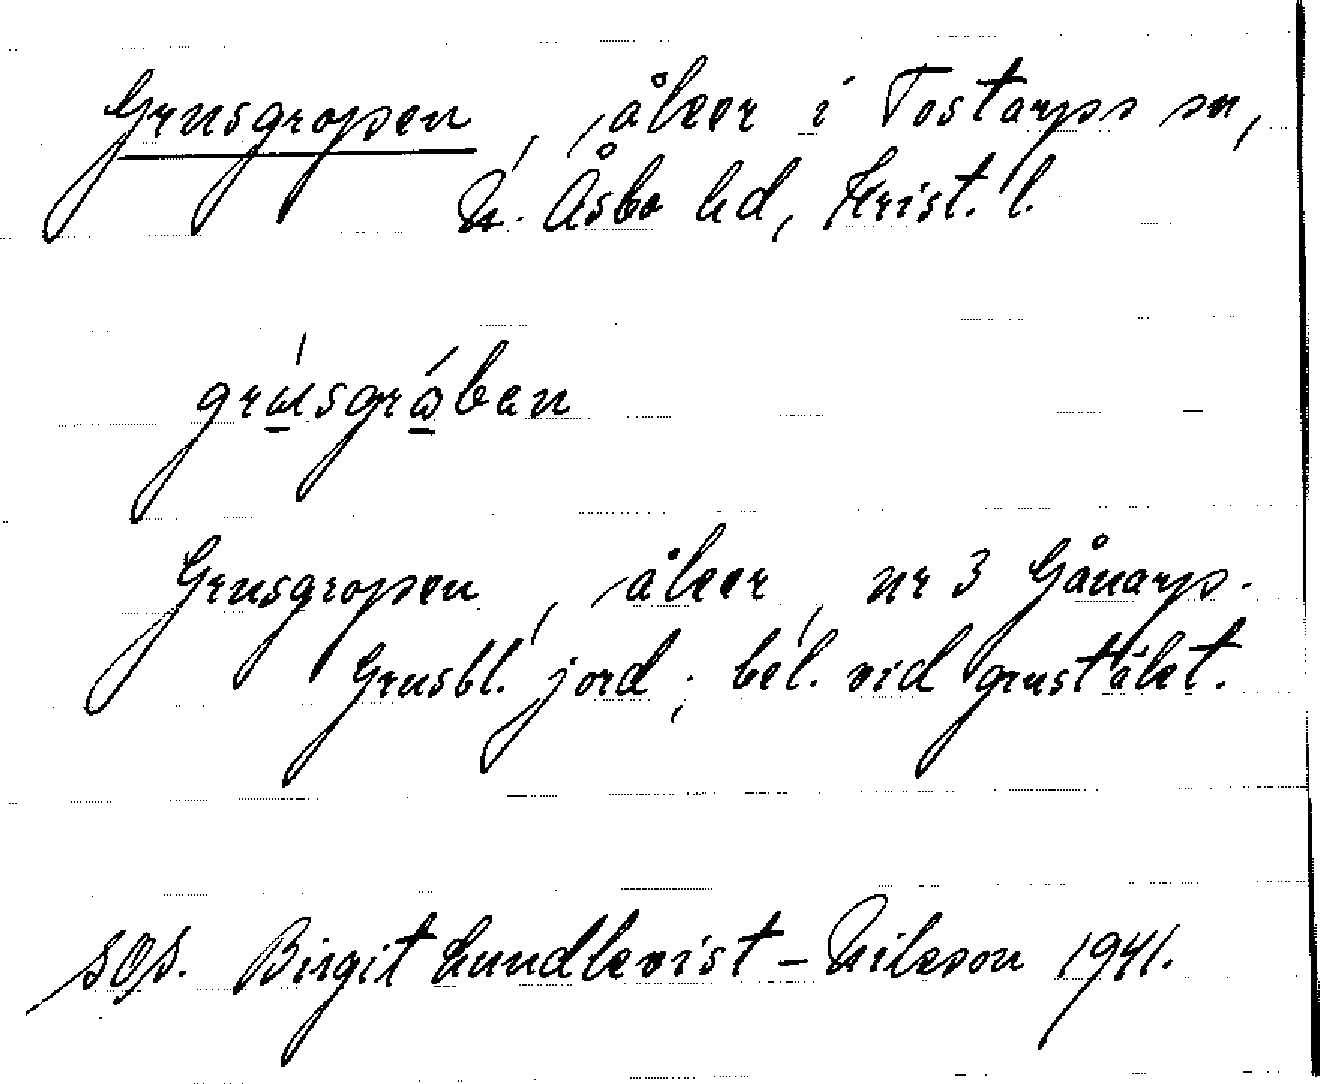 Grusgropen, åker i Tostarps sn,
N. Åsbo hd, Krist. l.
grúsgrǻban
Grusgropen, åker, nr 3 Gånarp.
Grusbl. jord; bel. vid grustäkt.
SOS. Birgit Lundkvist-Nilsson 1941.